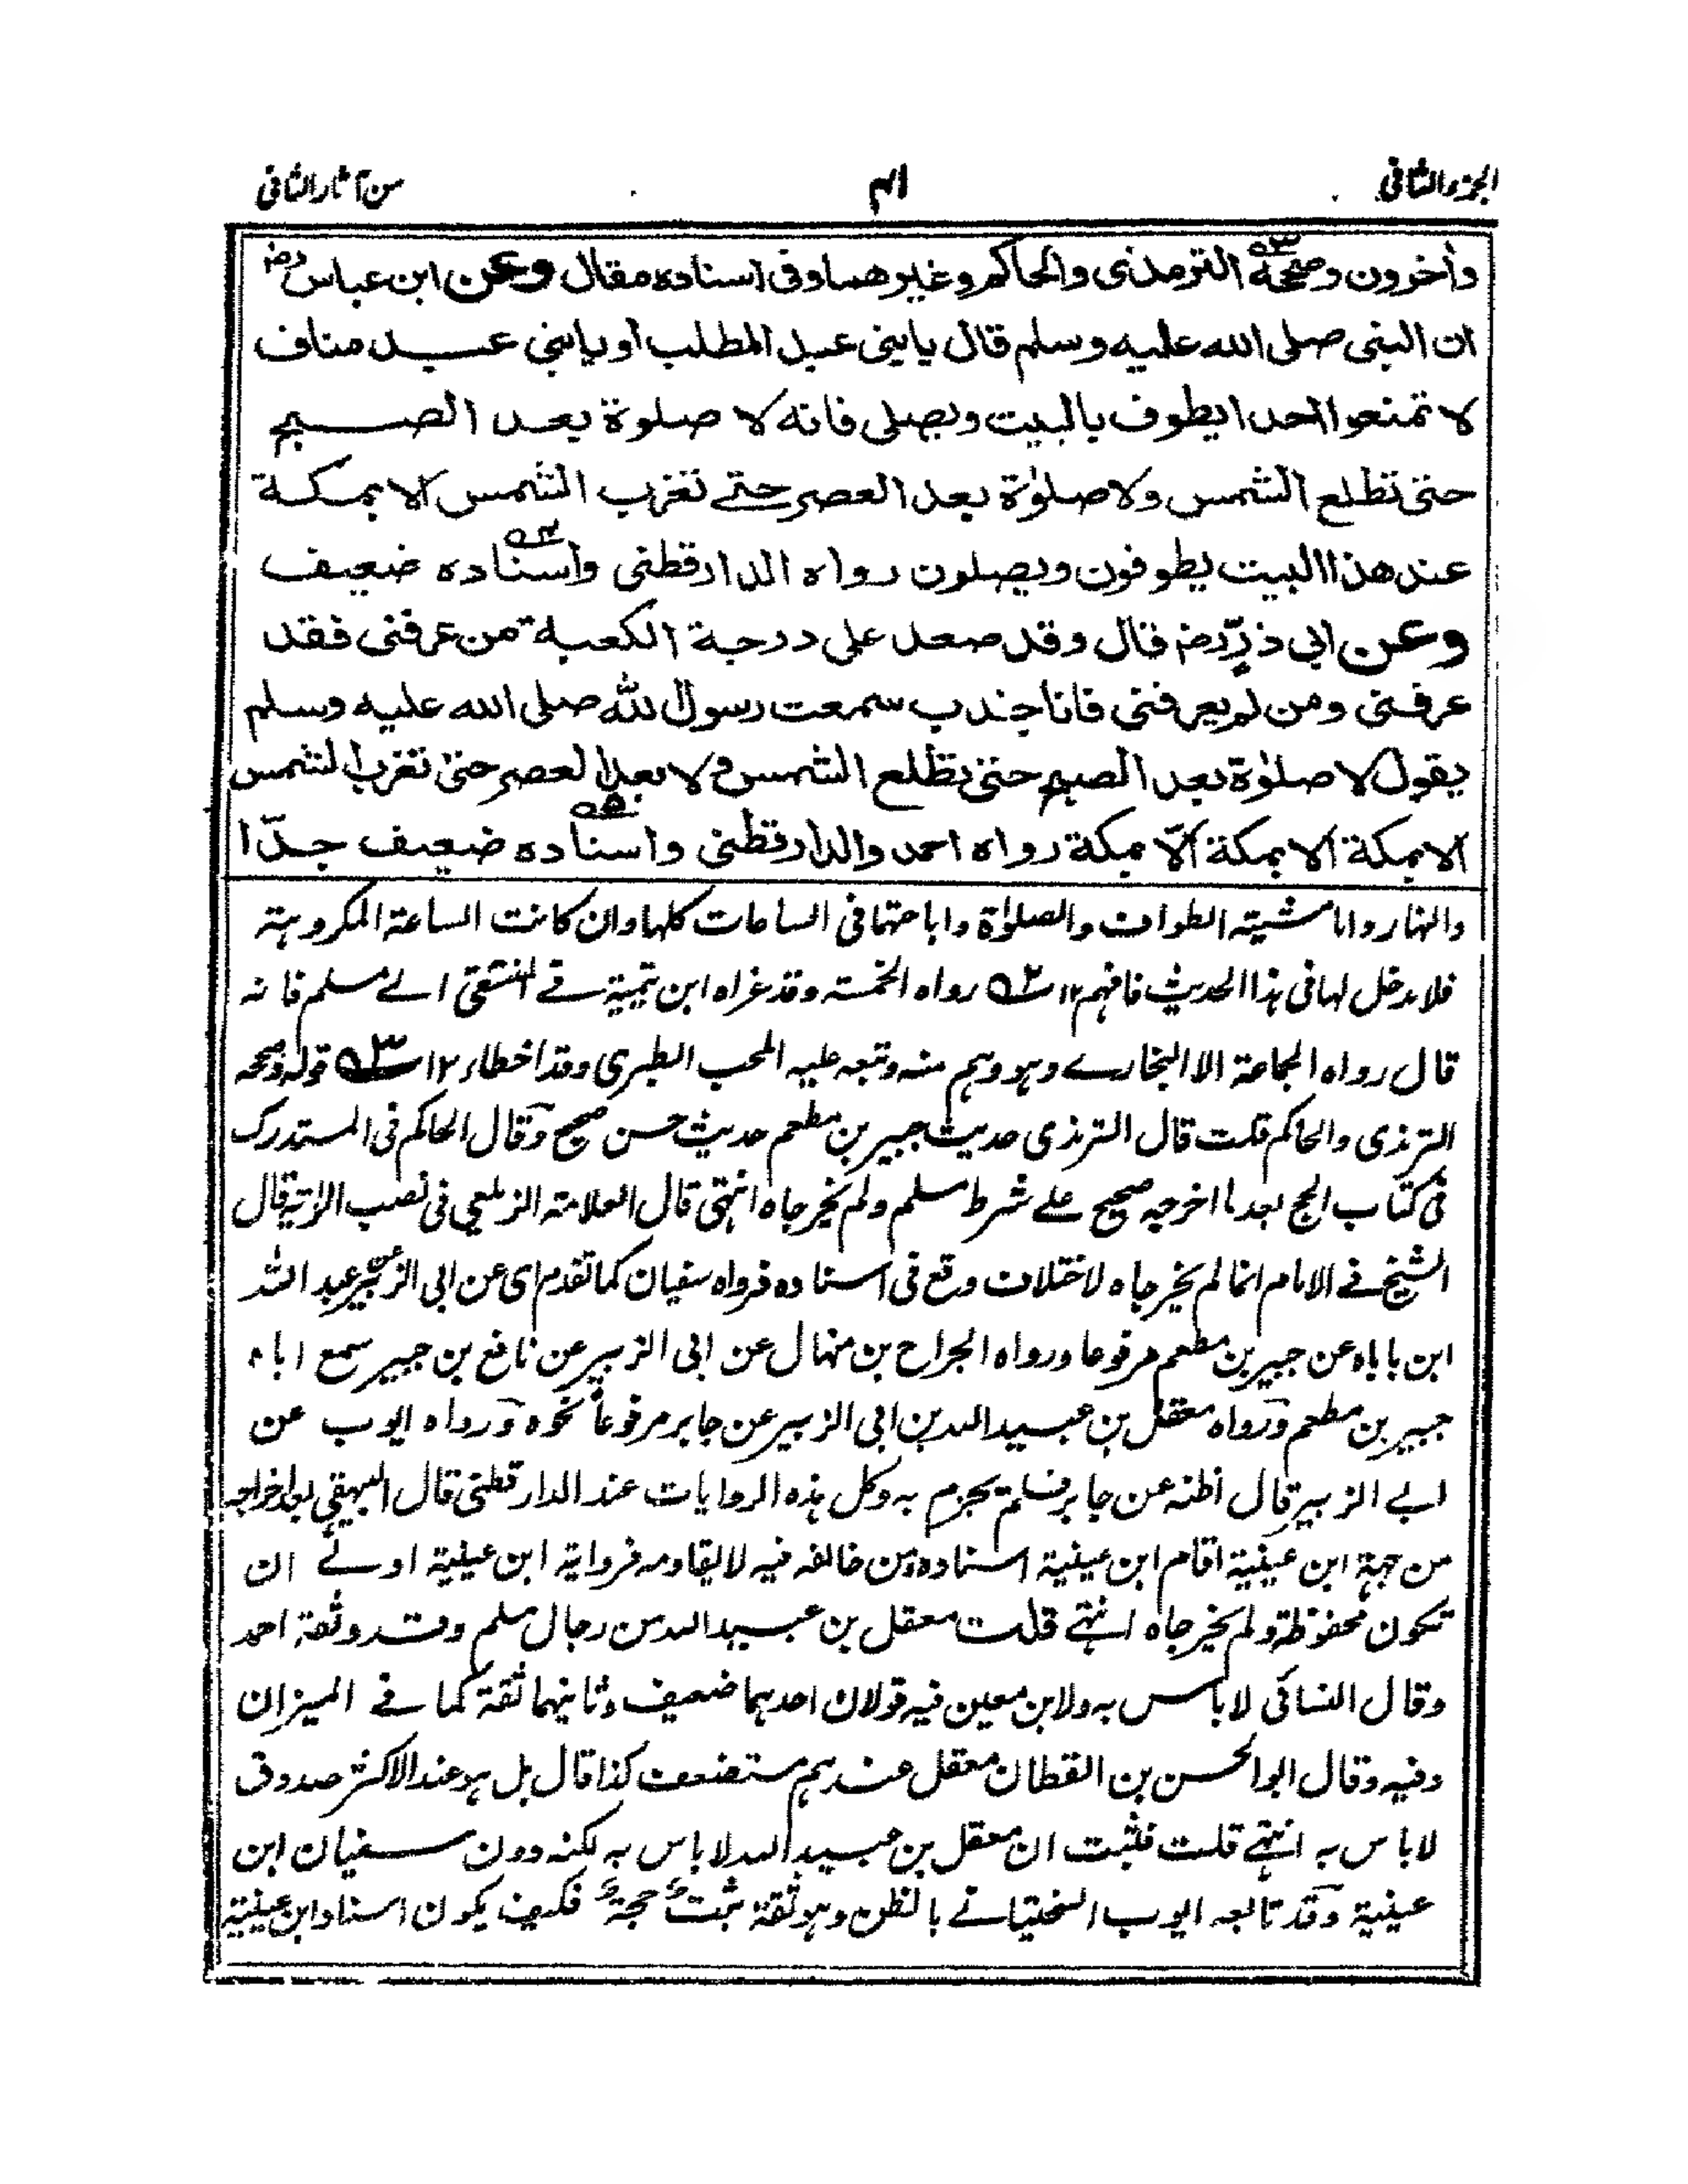 الجزء الثانی
٤١
من آثار الثانی
وأخرون وصححه الترمذی والحاکم وغیرهما وفی اسناده مقال وعن ابن عباس رضـ
ان النبی صلی الله علیه وسلم قال یا بنی عبد المطلب او یا بنی عبد مناف
لا تمنعوا احدا یطوف بالبیت ویصلی فانه لا صلوة بعد الصبح
حتی تطلع الشمس ولا صلوٰة بعد العصر حتے تغرب الشمس الا بمکة
عند هذا البیت یطوفون ویصلون رواه الدارقطنی واسناده ضعیف
وعن ابی ذرّ رضـ قال وقد صعد علی درجة الکعبة من عرفنی فقد
عرفنی ومن لم یعرفنی فانا جندب سمعت رسول الله صلی الله علیه وسلم
یقول لا صلوٰة بعد الصبح حتی تطلع الشمس ولا بعد العصر حتیٰ تغرب الشمس
الا بمکة الا بمکة الّا بمکة رواه احمد والدارقطنی واسناده ضعیف جدّا
والنهار واما مشیته الطواف والصلوٰة واباحتها فی الساعات کلها وان کانت الساعة المکروهة
فلا دخل لها فی هذا الحدیث فافهم ١٢ ت ٥٢ رواه الخمسة وقد عزاه ابن تیمیة فے المنتقی الے مسلم فانه
قال رواه الجماعة الا البخارے وهو وهم منه وتبعه علیه المحب الطبری وقد اخطاء ١٢ ت ٥٣ قوله وصححه
الترمذی والحاکم قلت قال الترمذی حدیث جبیر بن مطعم حدیث حسن صحیح وقال الحاکم فی المستدرک
فی کتاب الحج بعد ما اخرجه صحیح علے شرط مسلم ولم یخرجاه انتهی قال العلامة الزیلعی فی نصب الرایة قال
الشیخ فے الامام انما لم یخرجاه لاختلاف وقع فی اسناده فرواه سفیان کما تقدم ای عن ابی الزبیر عن عبد الله
ابن باباه عن جبیر بن مطعم مرفوعا ورواه الجراح بن منهال عن ابی الزبیر عن نافع بن جبیر سمع اباه
جبیر بن مطعم ورواه معقل بن عبید الله بن ابی الزبیر عن جابر مرفوعاً نحوه ورواه ایوب عن
ابے الزبیر قال اظنه عن جابر فلم یجزم به وکل هذه الروایات عند الدارقطنی قال البیهقی بعد اخراجه
من جهة ابن عیینة اقام ابن عیینة اسناده ومن خالفه فیه لا یقاومه فروایة ابن عیینة اولے ان
تکون محفوظة ولم یخرجاه انتهے قلت معقل بن عبید الله من رجال مسلم وقد وثقه احمد
وقال النسائی لا باس به ولابن معین فیه قولان احدهما ضعیف وثانیهما ثقة کما فے المیزان
وفیه وقال ابو الحسن بن القطان معقل عندهم مستضعف کذا قال بل هو عند الاکثر صدوق
لا باس به انتهے قلت فثبت ان معقل بن عبید الله لا باس به لکنه دون سفیان ابن
عیینة وقد تابعه ایوب السختیانے بالظن وهو ثقة ثبت حجة فکیف یکون اسناد ابن عیینة